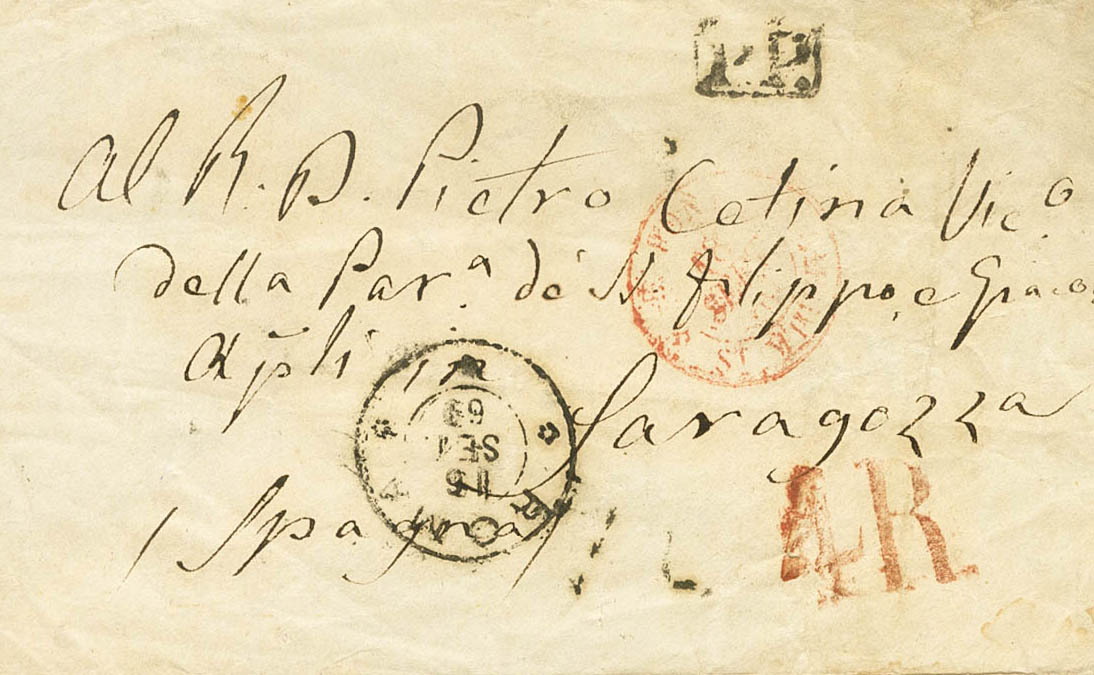 P.P.
Al R. D. Pietro Cetina Vic.o
della Par.a de SS Filippo, e Giaco
Apli in Saragozza
(Spagna)
ROMA
SET
69
4R